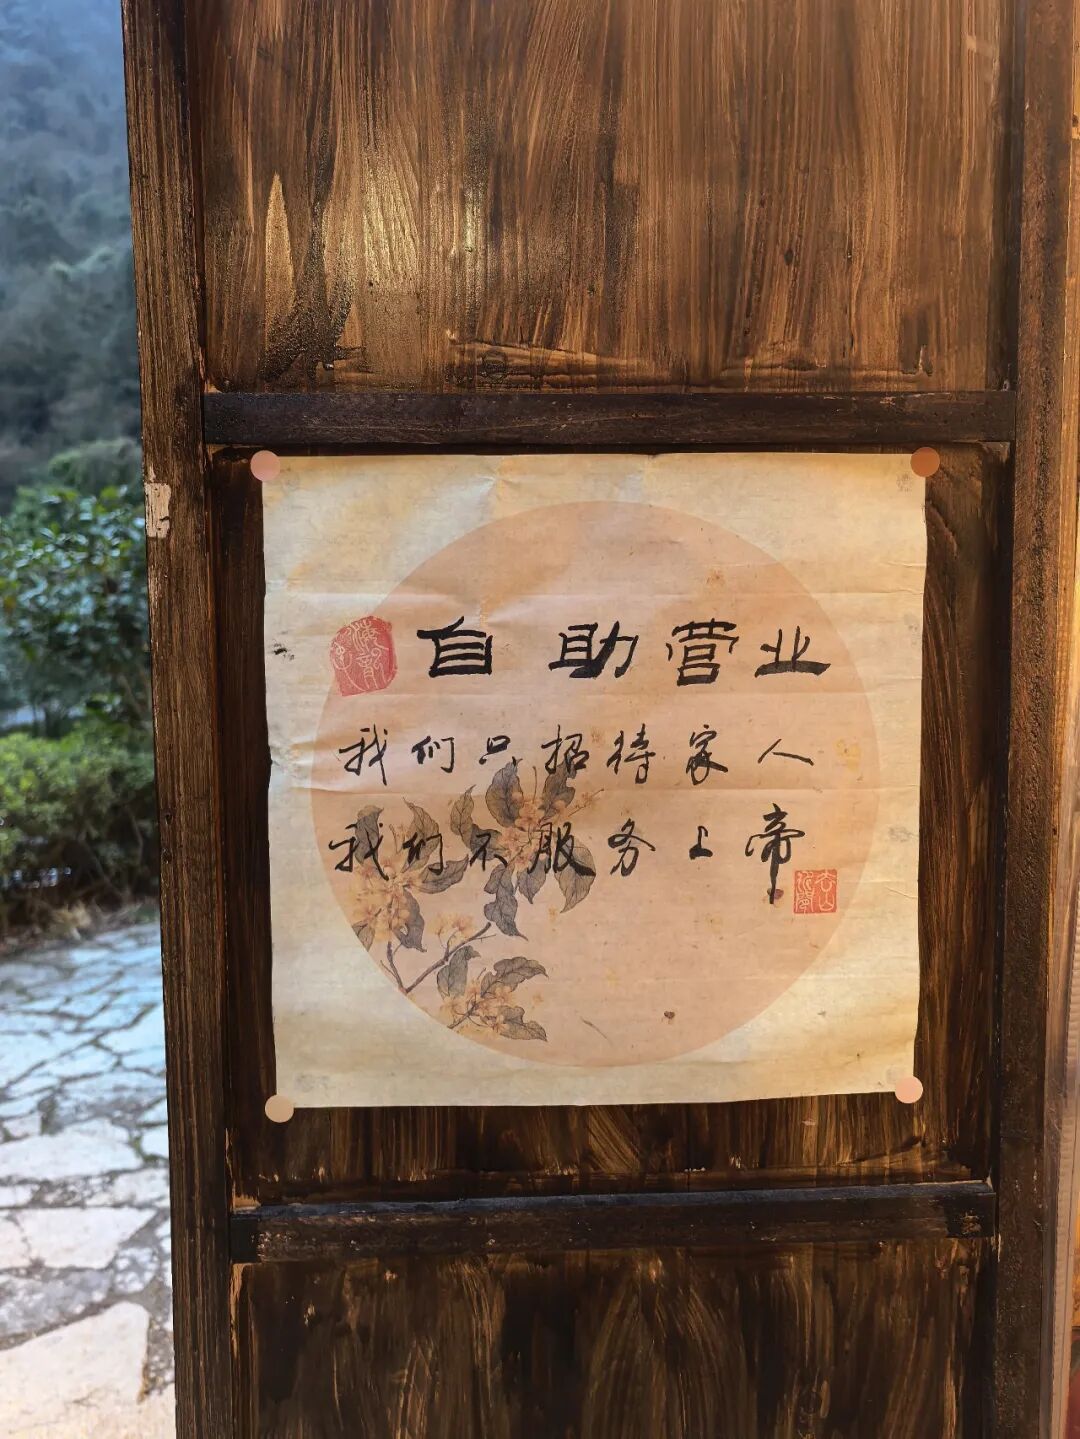 自助营业
我们只招待家人
我们不服务上帝